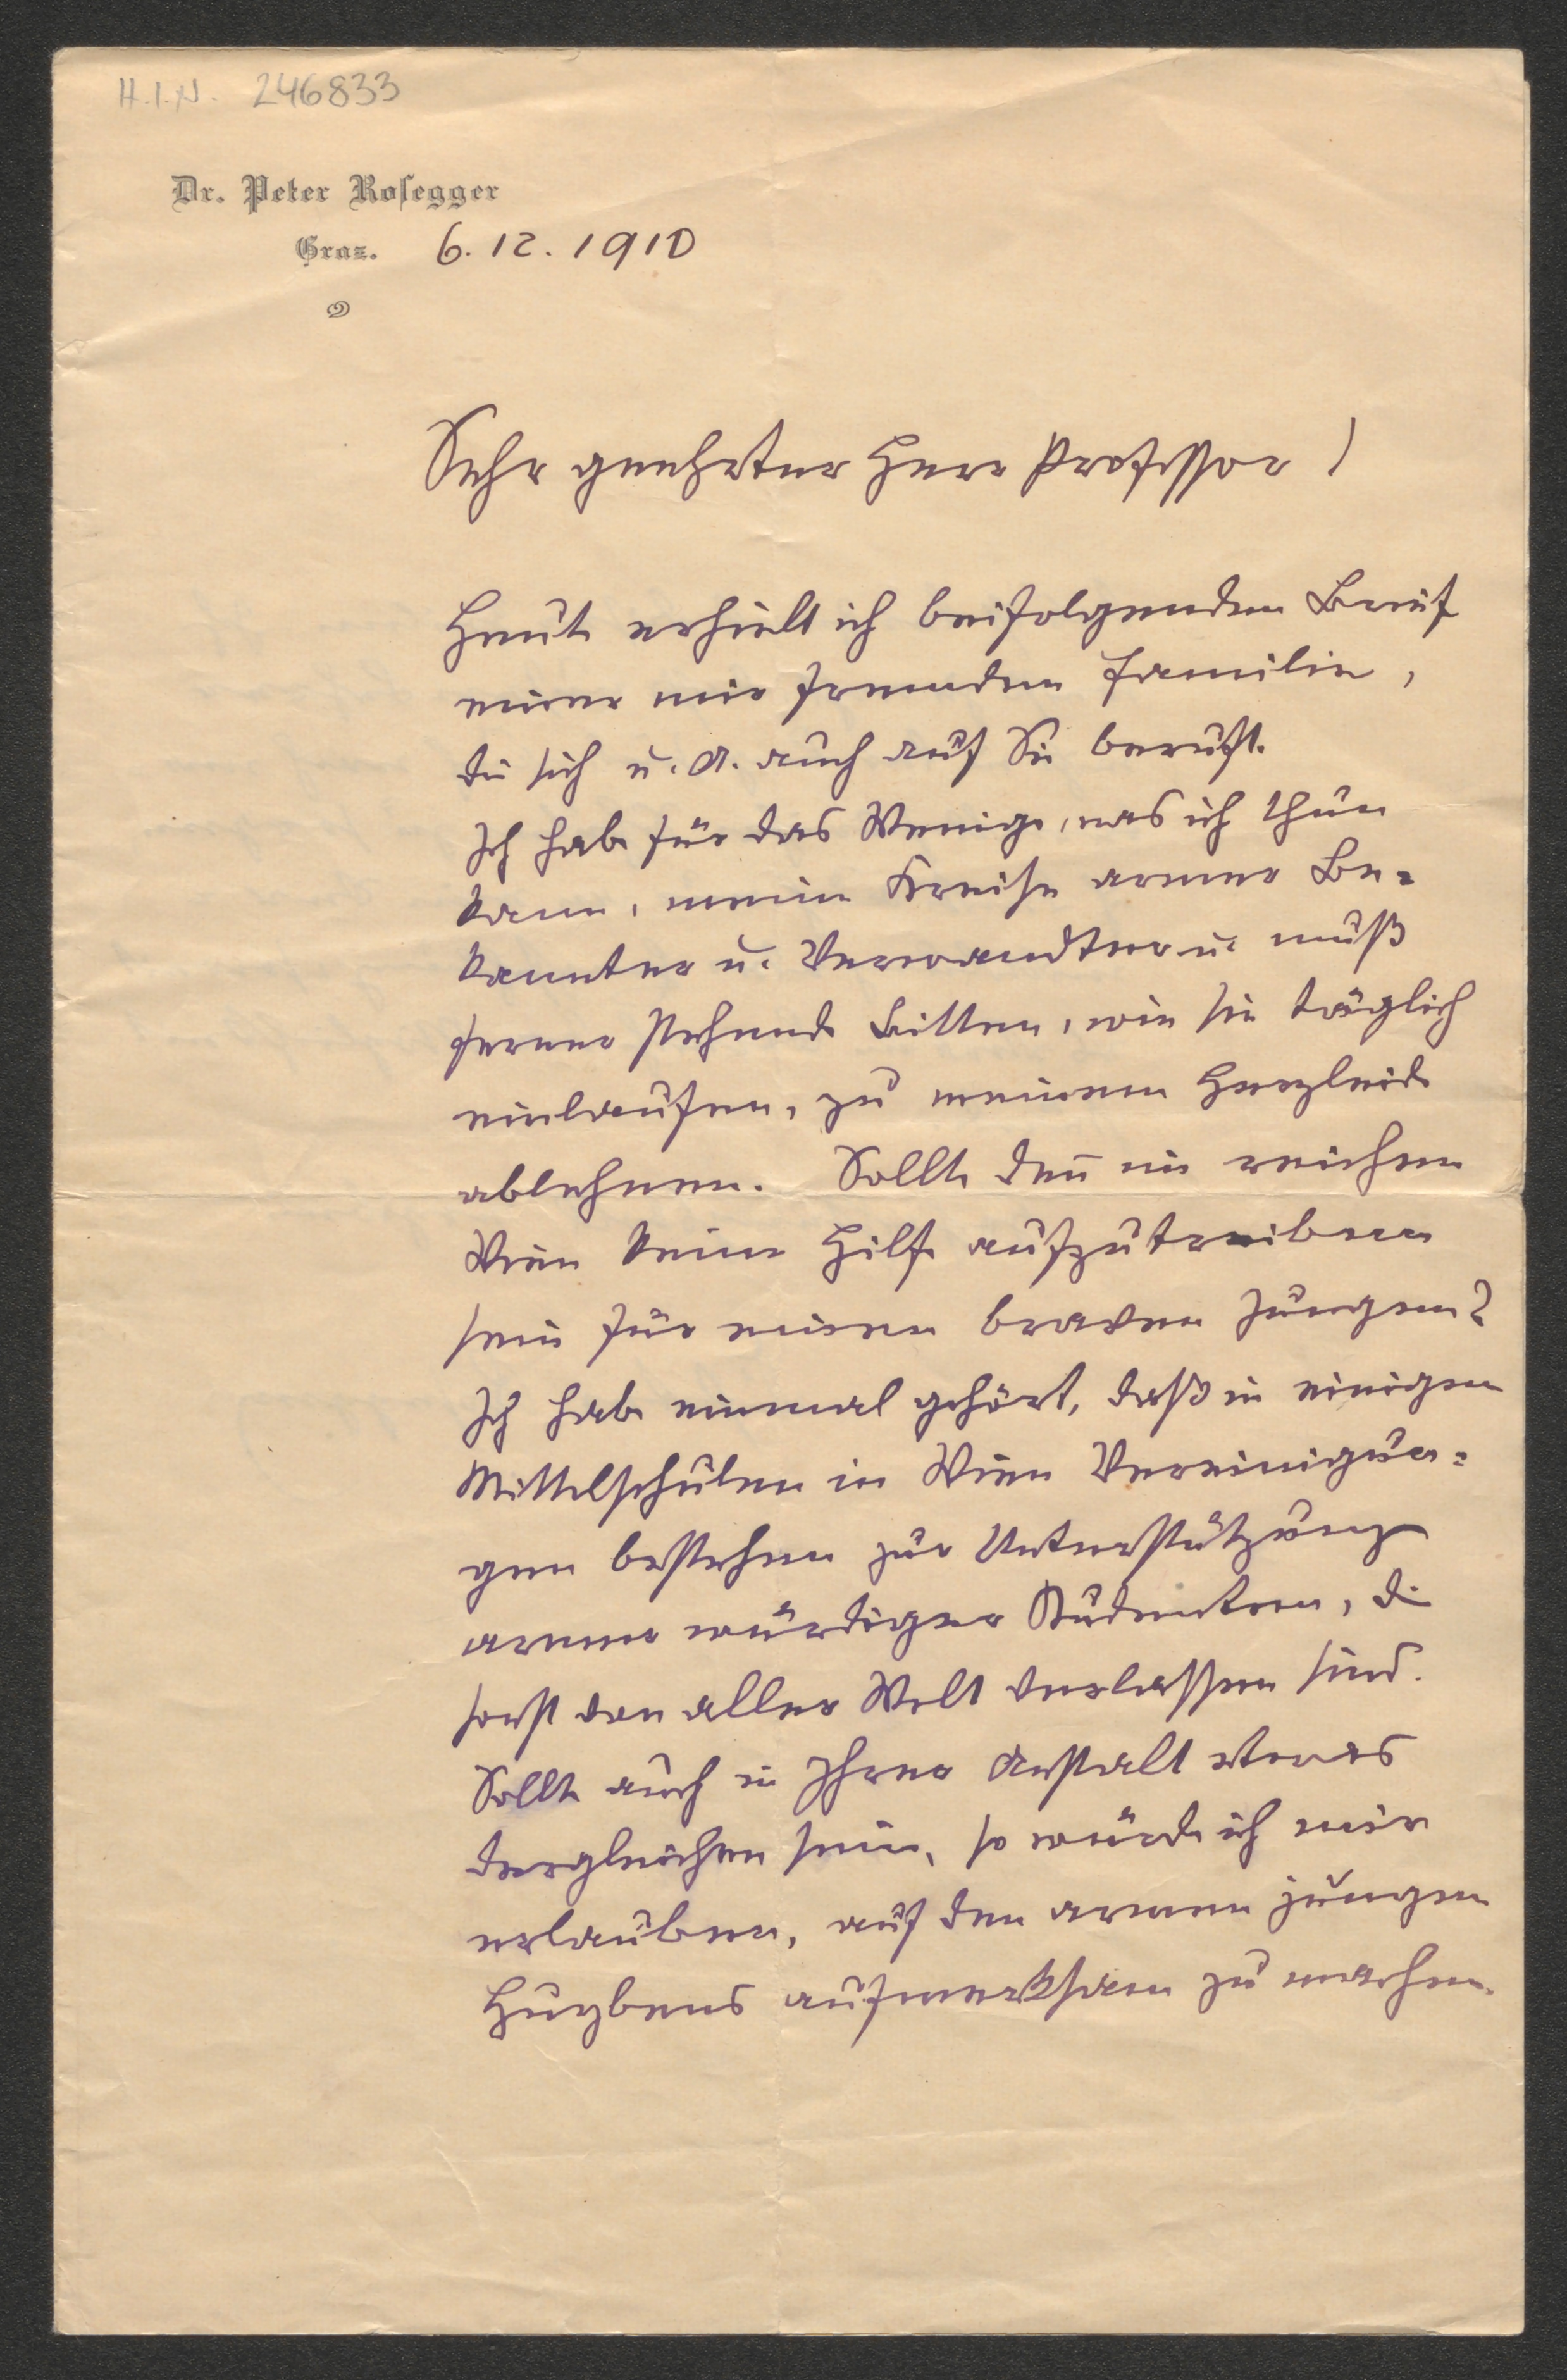 H.I.N. 246833
Dr. Peter Rosegger
Graz. 6.12.1910
Sehr geehrter Herr Professor!
Heute erhielt ich beifolgenden Brief
einer mir fremden Familie,
die sich u. A. auch auf Sie beruft.
Ich habe für das Wenige, was ich thun
kann, meine Kreise armer Be-
kannter u. Verwandter u. muß
ferner stehende Bitten, wie sie täglich
einlaufen, zu meinem Herzleide
ablehnen. Sollte den̄ im reichen
Wien keine Hilfe aufzutreiben
sein für einen braven Jungen?
Ich habe einmal gehört, daß in einigen
Mittelschulen in Wien Vereinigun-
gen bestehen zur Unterstützung
armer würdiger Studenten, die
sonst von aller Welt verlassen sind.
Sollte auch in Ihrer Anstalt etwas
dergleichen sein, so würde ich mir
erlauben, auf den armen jungen
aufmerksam zu machen.